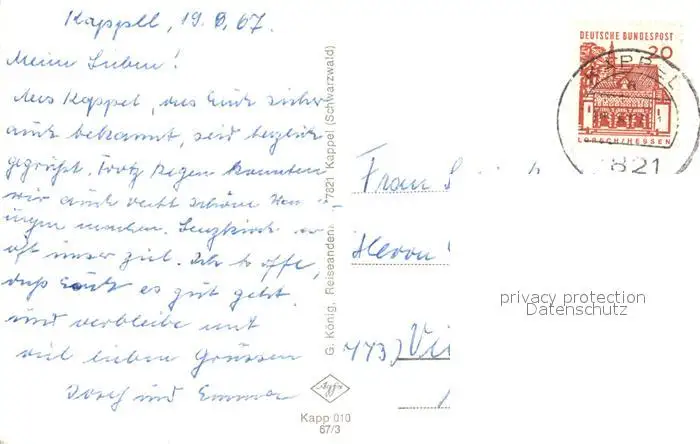 Kappel, 19.9.67.
Meine Lieben!
Aus Kappel, das Euch sicher
auch bekannt, seid herzlich
gegrüßt. Trotz Regen konnten
wir auch recht schöne Wan-
ungen machen. Lenzkirch war
oft unser Ziel. Ich hoffe,
daß Euch es gut geht
und verbleibe mit
viel lieben Grüssen
Josef und Emma
G. König, Reiseanden. 7821 Kappel (Schwarzwald)
Agfa
Kapp 010
67/3
DEUTSCHE BUNDESPOST
20
LORSCH/HESSEN
KAPPEL
7821
Frau
Herrn
773)
privacy protection
Datenschutz